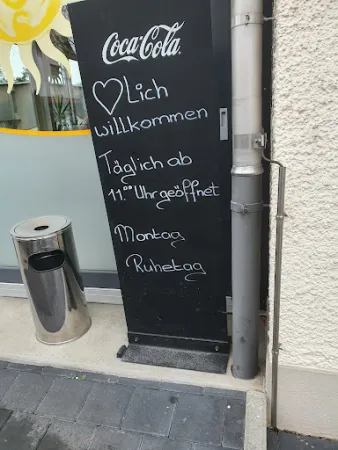 Coca-Cola
♡Lich
willkommen
Täglich ab
11.⁰⁰ Uhr geöffnet
Montag
Ruhetag